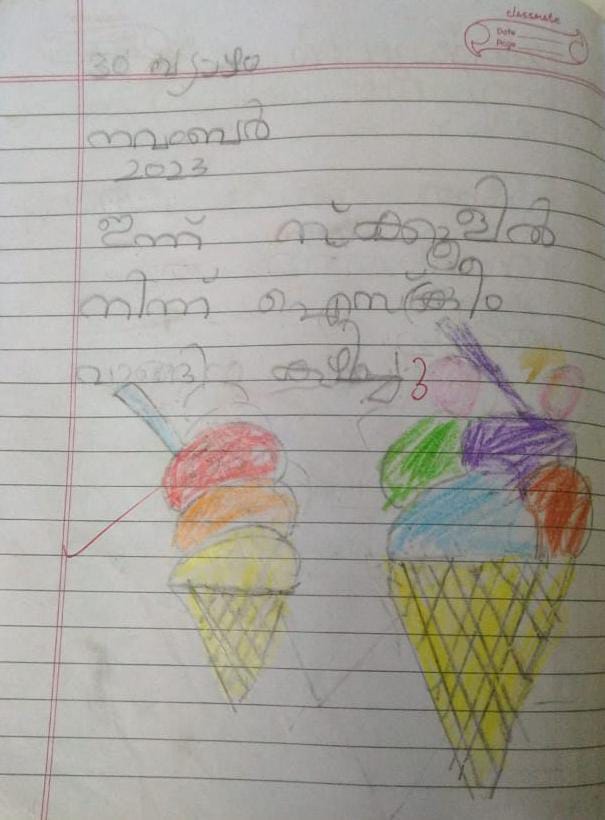 classmate
Date
Page
30 വ്യാഴം
നവംബെർ
2023
ഇന്ന് സ്ക്കൂളിൽ
നിന്ന് ഐസ്ക്രീം
വാങ്ങി കഴിച്ചു